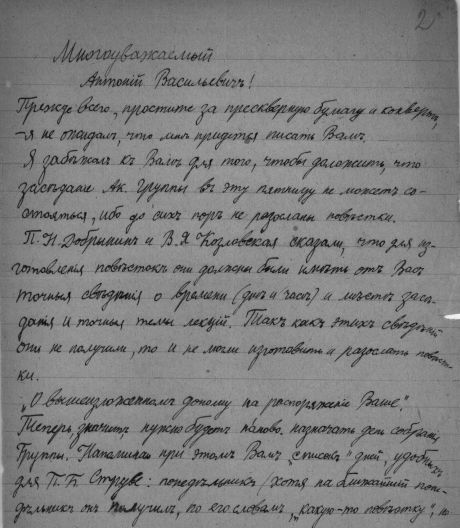 2
Многоуважаемый
Антоній Васильевичъ!
Прежде всего, простите за прескверную бумагу и конвертъ,
– я не ожидалъ, что мнѣ придется писать Вамъ.
Я забѣжалъ къ Вамъ для того, чтобы доложить, что
засѣданіе Ак. Группы въ эту пятницу не можетъ со-
стояться, ибо до сихъ поръ не разосланы повѣстки.
П. Н. Добрынинъ и В. Я Козловская сказали, что для из-
готовленія повѣстокъ они должны были имѣть отъ Васъ
точныя свѣдѣнія о времени (днѣ и часѣ) и мѣстѣ засѣ-
данія и точныя темы лекцій. Такъ какъ этихъ свѣдѣній
они не получили, то и не могли изготовить и разослать повѣст-
ки.
„О вышеизложенномъ доношу на распоряженіе Ваше“.
Теперь, значитъ, нужно будетъ наново назначать день собранія
Группы. Напоминаю при этомъ Вамъ „списокъ“ дней, удобныхъ
для П. Б Струве: понедѣльникъ (хотя на ближайшій поне-
дѣльникъ онъ получилъ, по его словамъ, „какую-то повѣстку“, но